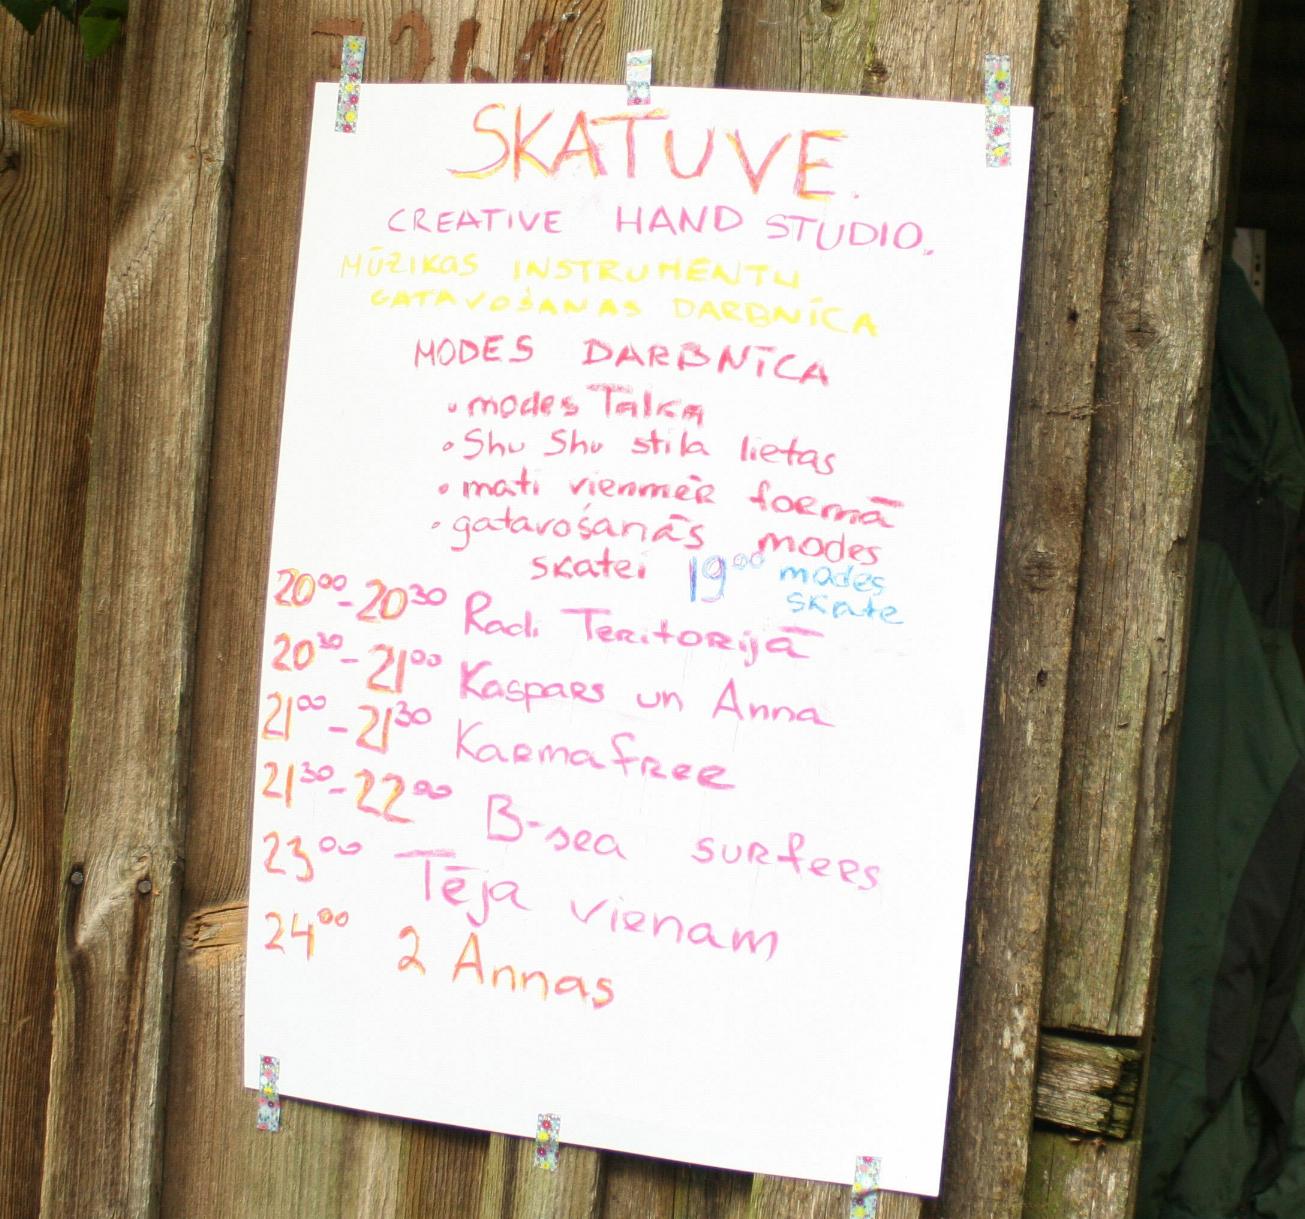 SKATUVE.
CREATIVE HAND STUDIO.
MŪZIKAS INSTRUMENTU
GATAVOŠANAS DARBNĪCA
MODES DARBNĪCA
• modes Talka
• Shu Shu stila lietas
• mati vienmēr formā
• gatavošanās modes
skatei 19⁰⁰ modes
skate
20⁰⁰-20³⁰ Radi Teritorijā
20³⁰-21⁰⁰ Kaspars un Anna
21⁰⁰-21³⁰ Karmafree
21³⁰-22⁰⁰ B-sea surfers
23⁰⁰ Tēja vienam
24⁰⁰ 2 Annas